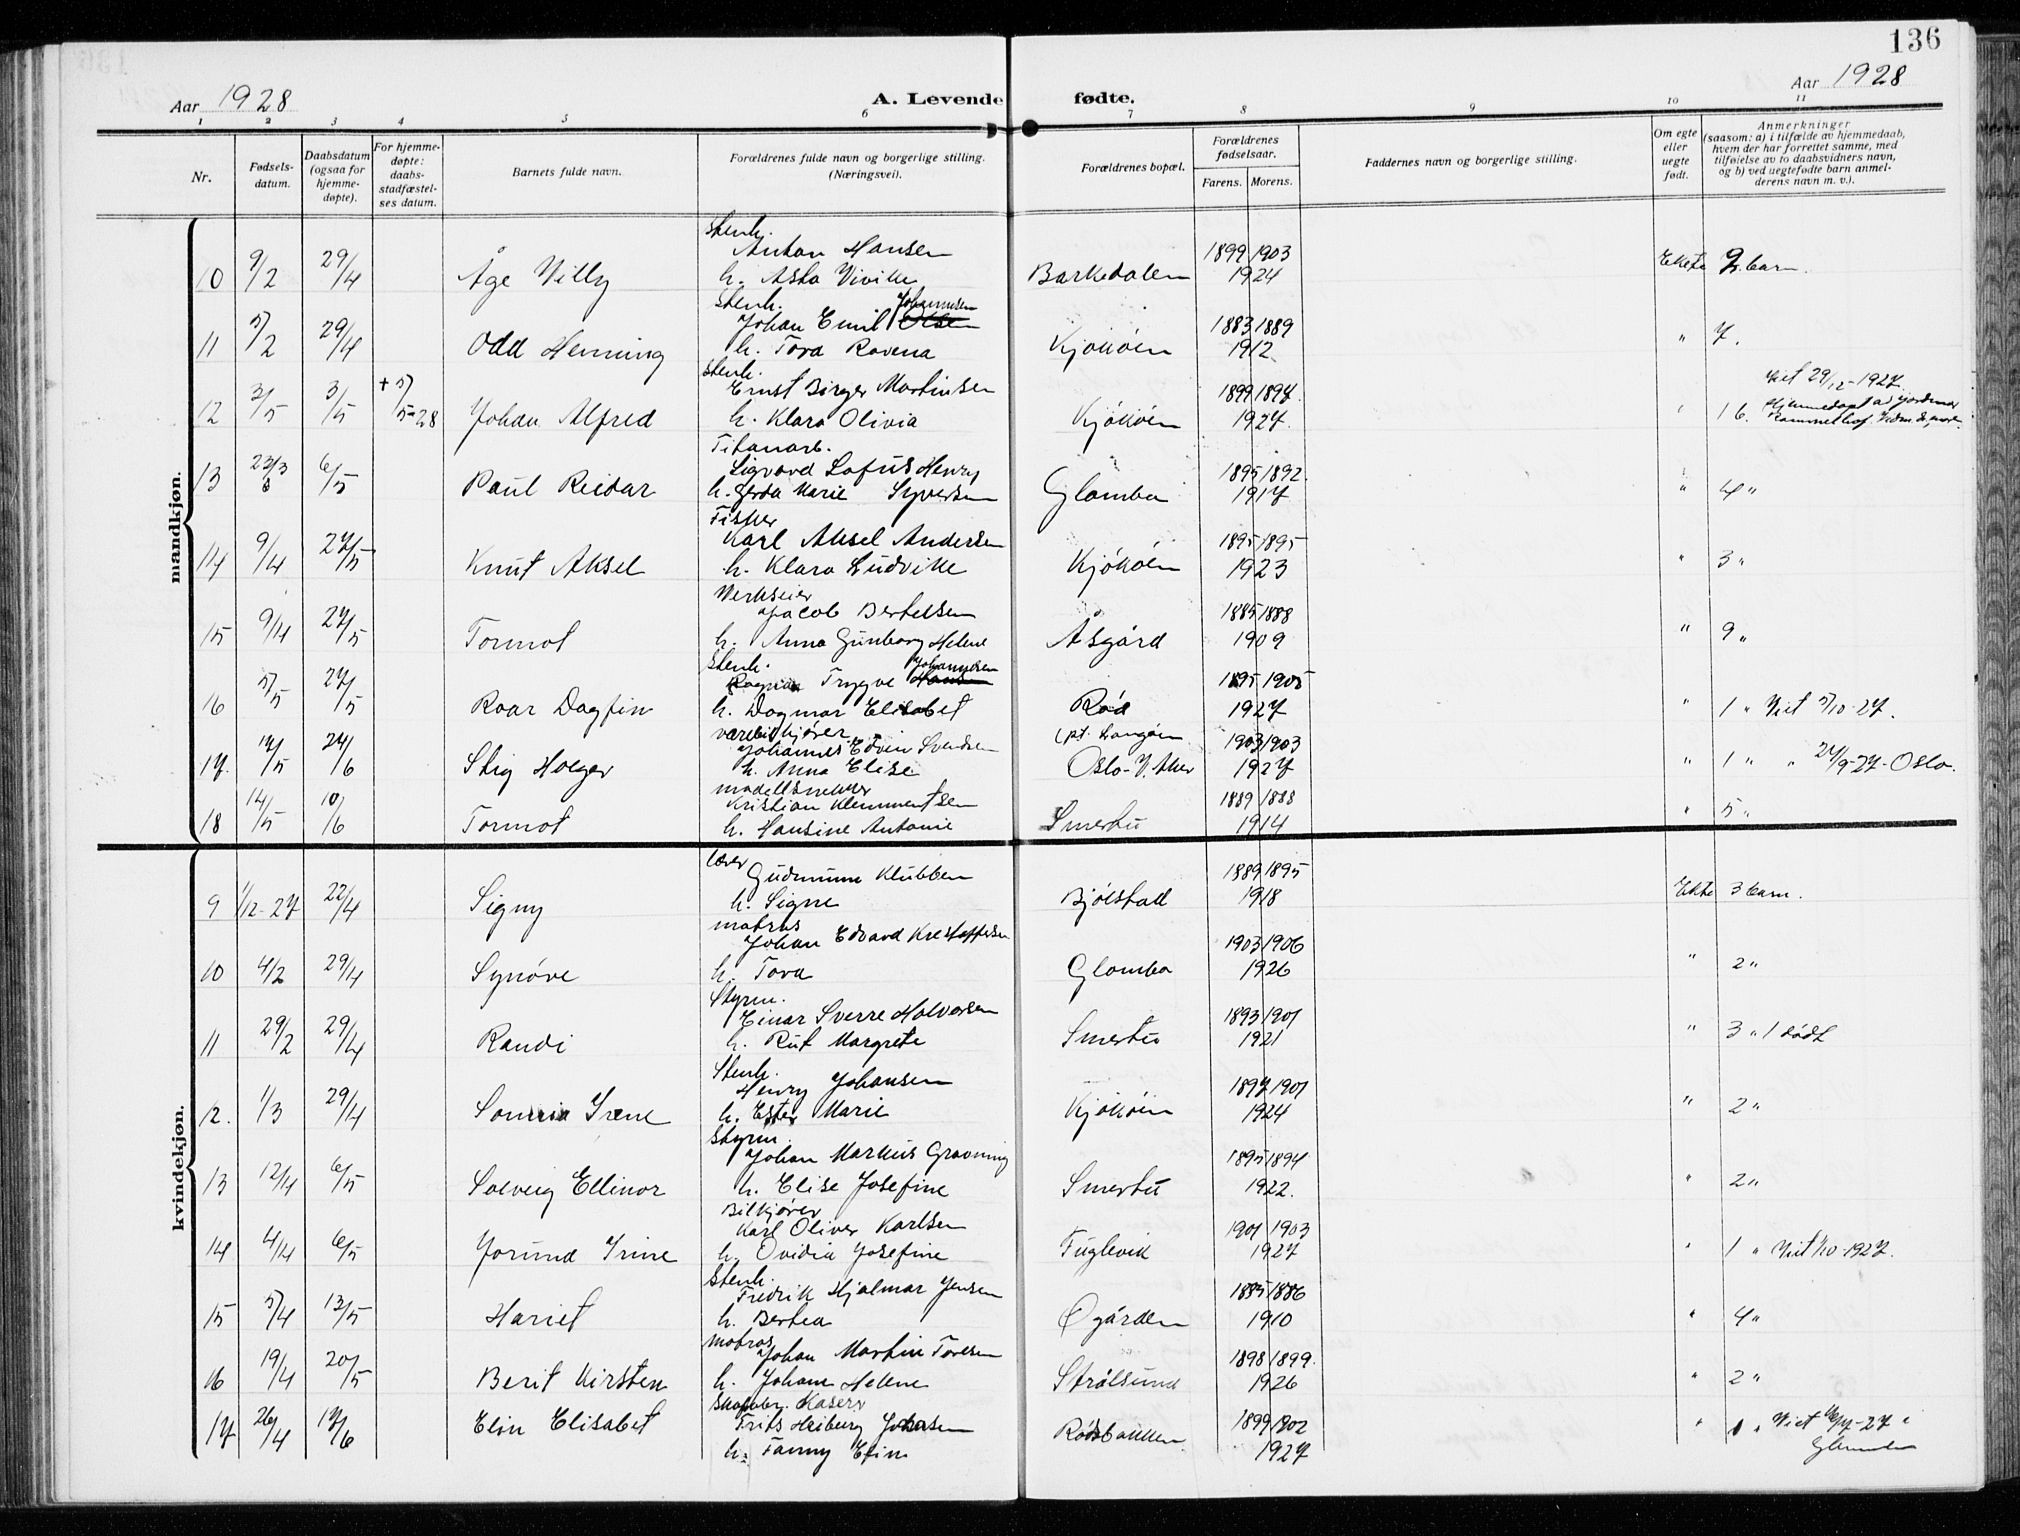 136
Aar 1928 A. Levende fødte. Aar 1928
1 2 3 4 5 6 7 8 9 10 11
Nr.
Fødsels-
datum.
Daabsdatum
(ogsaa for
hjemme-
døpte).
For hjemme-
døpte:
daabs-
stadfæstel-
ses datum.
Barnets fulde navn.
Forældrenes fulde navn og borgerlige stilling.
(Næringsvei).
Forældrenes bopæl.
Forældrenes
fødselsaar.
Farens. Morens.
Faddernes navn og borgerlige stilling.
Om egte
eller
uegte
født.
Anmerkninger
(saasom: a) i tilfælde av hjemmedaab,
hvem der har forrettet samme, med
tilføielse av to daabsvidners navn,
og b) ved uegtefødte barn anmel-
derens navn m. v.).
mandkjøn.
Stenh.
Anton Hansen 1899 1903
10 9/2 29/4 Åge Villy h. Asta Vivike Barkedalen 1924 Ekte 2 barn.
Stenh. Johannesen
Johan Emil Olsen 1883 1889
11 5/2 29/4 Odd Henning h. Tora Rovena Kjøkøen 1912 " 7.
Stenh.
Ernst Birger Martinsen 1899 1897 Viet 29/12-1927.
12 3/5 3/5 + 5/5-28 Johan Alfred h. Klara Olivia Kjøkøen 1927. " 16. Hjemmedøpt av jordmor
Titanarb.
Sigvard Lofus Henry 1895 1892
13 23/3 6/5 Paul Reidar h. Gerda Marie Syversen Glomba 1917 " 4 "
Fisker
Karl Aksel Andersen 1895 1895
14 9/4 27/5 Knut Aksel h. Klara Ludvike Kjøkøen 1923 " 3 "
Verkseier
Jacob Bertelsen 1885 1888
15 9/4 27/5 Tormot h. Anna Gunborg Helene Åsgård 1909 " 9 "
Stenh. Johannesen
Ragnar Trygve Hansen 1895 1905
16 5/5 27/5 Roar Dagfin h. Dagmar Elisabet Rød 1927 " 1 " Viet 5/10-27.
varebilkjører (pt. Langøen
Johannes Edvin Svendsen 1903 1903
17. 14/5 24/6 Stig Holger h. Anna Elise Oslo-V. Aker 1927 " 1 " " 24/9-27-Oslo.
modellsnekker
Kristian Klemmentsen 1889 1888
18 14/5 10/6 Tormot h. Hansine Antonie Smertu 1914 " 5 "
kvindekjøn.
Lærer
Gudmunn Klubben 1889 1895
9 1/12-27 22/4 Signy h. Signe Bjølstad 1918 Ekte 3 barn.
matros
Johan Edvard Kristoffersen 1903 1906
10 4/2 29/4 Synøve h. Tora Glomba 1926 " 2 "
Styrm.
Einar Sverre Halvorsen 1893 1901
11 29/2 29/4 Randi h. Rut Margrete Smertu 1921 " 3 " 1 dødt
Stenh.
Henry Johansen 1897 1901
12. 1/3 29/4 Sonnia Irene h. Ester Marie Kjøkøen 1924 " 2 "
Styrm.
Johan Markus Gravning 1895 1894
13 12/4 6/5 Solveig Ellinor h. Elise Josefine Smertu 1922. " 2 "
Bilkjører
Karl Oliver Karlsen 1901 1903
14 4/4 6/5 Jorund Irine h. Ovidia Josefine Fuglevik 1927 " 1 " Viet 1/10-1927.
Stenh.
Fredrik Hjalmar Jensen 1885 1886
15 5/4 13/5 Hariet h. Bertea Øgården 1910 " 4 "
matros
Johan Martin Toresen 1898 1899.
16 19/4 20/5 Berit Kirsten h. Johane Helene Strålsund 1926 " 2 "
Frits Heiberg Johnsen 1899 1902
17 26/4 17/6 Elin Elisabet h. Fanny Elin Rødsbakken 1927 " 1 " Viet